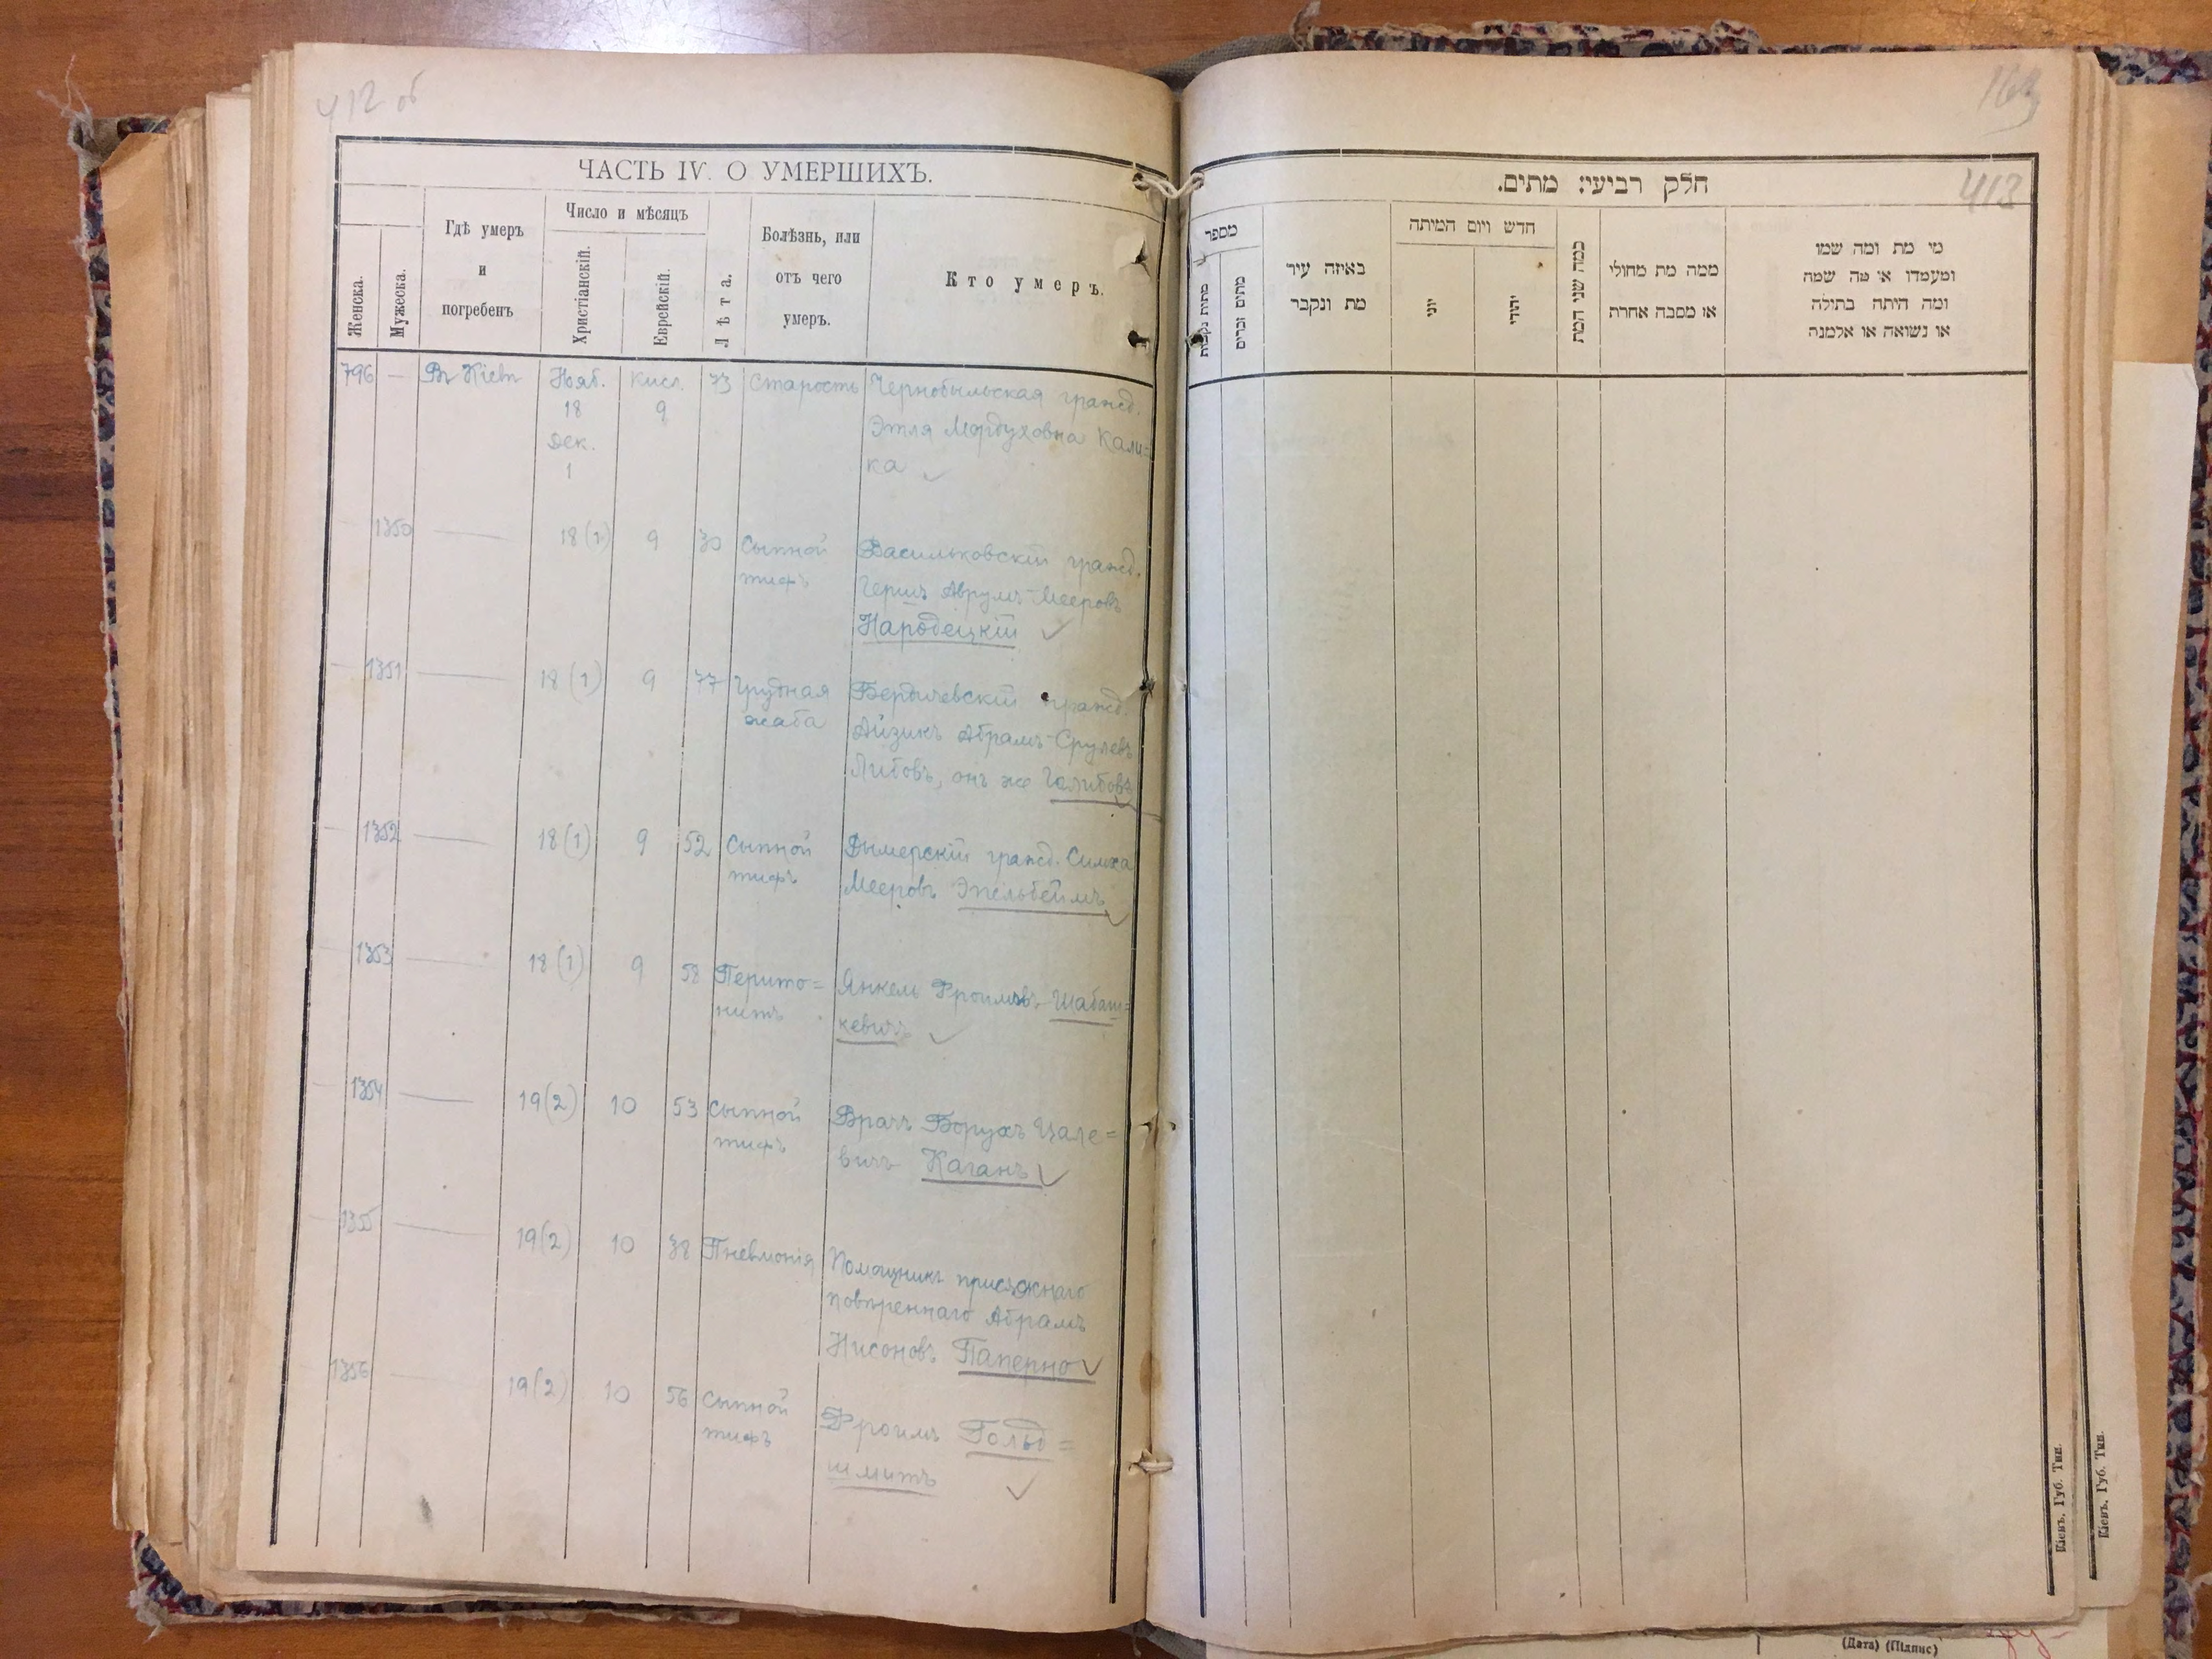 412 об
ЧАСТЬ IV. О УМЕРШИХЪ.
Женска.
Мужеска.
Гдѣ умеръ
и
погребенъ
Число и мѣсяцъ
Христіанскій.
Еврейскій.
Лѣта.
Болѣзнь, или
отъ чего
умеръ.
Кто умеръ.
796 — Въ Кіевѣ Нояб. Кисл. 73 Старость Чернобыльская гражд.
18 9 Этля Мордуховна Кали=
Дек. ка
1
1350 — 18(1) 9 30 Сыпной Васильковскій гражд.
тифъ Гершъ Аврумъ-Мееровъ
Народецкій
1351 — 18(1) 9 77 Грудная Бердичевскій гражд.
жаба Айзикъ Абрамъ-Срулевъ
Либовъ, онъ же Галибовъ
1352 — 18(1) 9 52 Сыпной Дымерскій гражд. Симха
тифъ Мееровъ Эпельбеймъ
1353 — 18(1) 9 58 Перито= Янкель Фроимовъ Шабаш=
нитъ кевичъ
1354 — 19(2) 10 53 Сыпной Врачъ Борухъ Цале=
тифъ вичъ Каганъ
1355 — 19(2) 10 38 Пневмонія Помощникъ присяжнаго
повѣреннаго Абрамъ
Нисоновъ Паперно
1356 — 19(2) 10 56 Сыпной Фроимъ Гольд=
тифъ шмитъ
163
413
חלק רביעי: מתים.
מספר
מתים זכרים
באיזה עיר
מת ונקבר
חדש ויום המיתה
יוני
יהודי
כמה שני המת
ממה מת מחולי
או מסבה אחרת
מי מת ומה שמו
ומעמדו או מה שמה
ומה היתה בתולה
או נשואה או אלמנה
Кіевъ, Губ. Тип.
Кіевъ, Губ. Тип.
(Дата) (Підпис)